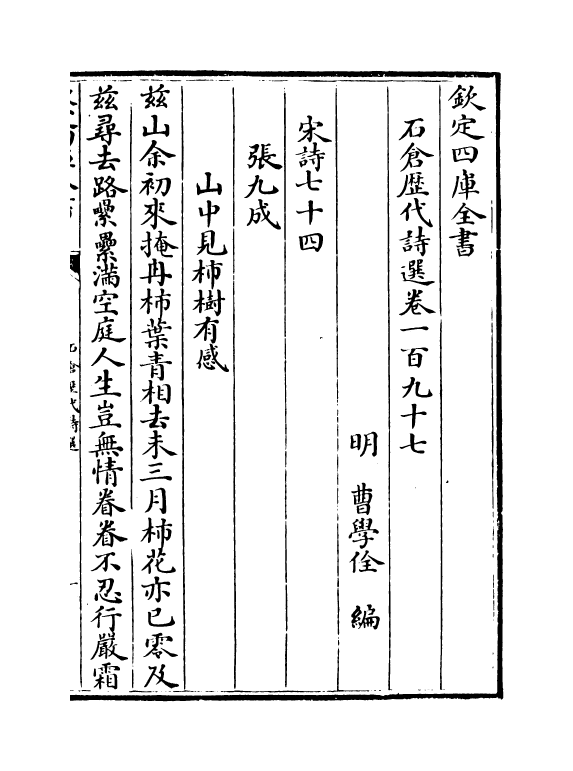 欽定四庫全書
石倉歴代詩選卷一百九十七
明 曹學佺 編
宋詩七十四
張九成
山中見柿樹有感
茲山余初來掩冉柿葉青相去未三月柿花亦已零及
茲尋去路纍纍滿空庭人生豈無情眷眷不忍行嚴霜
石倉歴代詩選
一